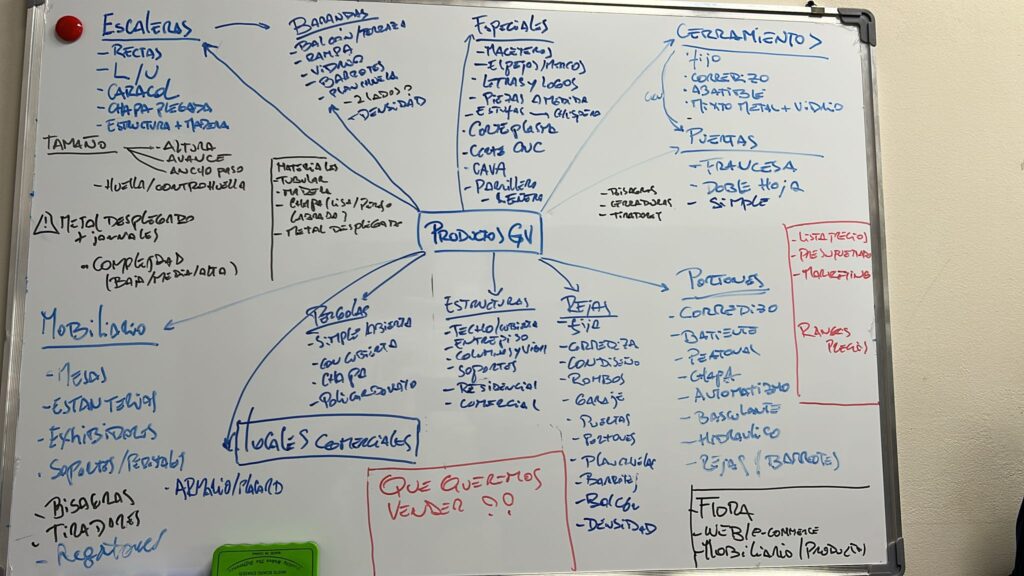 ESCALERAS
- RECTAS
- L/U
- CARACOL
- CHAPA PLEGADA
- ESTRUCTURA + MADERA
TAMAÑO
- ALTURA
AVANCE
ANCHO PASO
- HUELLA/CONTROHUELLA
METAL DESPLEGADO
+ JORNALES
- COMPLEJIDAD
(BAJA/MEDIA/ALTA)
BARANDAS
- BALCÓN/TERRAZA
- RAMPA
- VIDRIO
- BARROTES
- PLANCHUELA
- 2 LADOS?
- DENSIDAD
MATERIALES
- TUBULAR
- MADERA
- CHAPA (LISA/
- METAL DESPLEGADO
ESPECIALES
- MACETEROS
- ESPEJOS/MARCOS
- LETRAS Y LOGOS
- PIEZAS A MEDIDA
- ESTUFAS CHISPERO
- CORTE PLASMA
- CORTE CNC
- CAVA
- PARRILLERO
- LEÑERO
CERRAMIENTOS
- FIJO
- CORREDIZO
- ABATIBLE
- MIXTO METAL + VIDRIO
PUERTAS
- FRANCESA
- DOBLE HOJA
- SIMPLE
- BISAGRAS
- CERRADURAS
- TIRADORES
PRODUCTOS GV
- LISTA PRECIOS
- PRESUPUESTO
- MARKETING
RANGES
PRECIOS
MOBILIARIO
- MESAS
- ESTANTERIAS
- EXHIBIDORES
- SOPORTES/
- BISAGRAS
- TIRADORES
- ARMARIO/PLACARD
PÉRGOLAS
- SIMPLE ABIERTA
- CON CUBIERTA
- CHAPA
- POLICARBONATO
LOCALES COMERCIALES
ESTRUCTURAS
- TECHO/CUBIERTA
- ENTREPISO
- COLUMNAS Y VIGAS
- SOPORTES
- RESIDENCIAL
- COMERCIAL
REJAS
- FIJA
- CORREDIZA
- CON DISEÑO
- ROMBOS
- GARAJE
- PUERTAS
- PORTONES
- PLANCHUELA
- BARROTES
- BALCÓN
- DENSIDAD
PORTONES
- CORREDIZO
- BATIENTE
- PEATONAL
- CHAPA
- AUTOMATIZADO
- BASCULANTE
- HIDRAULICO
- REJAS / BARROTES
QUE QUEREMOS
VENDER ??
FIORA
- WEB/e-COMMERCE
- MOBILIARIO/PRODUCTOS